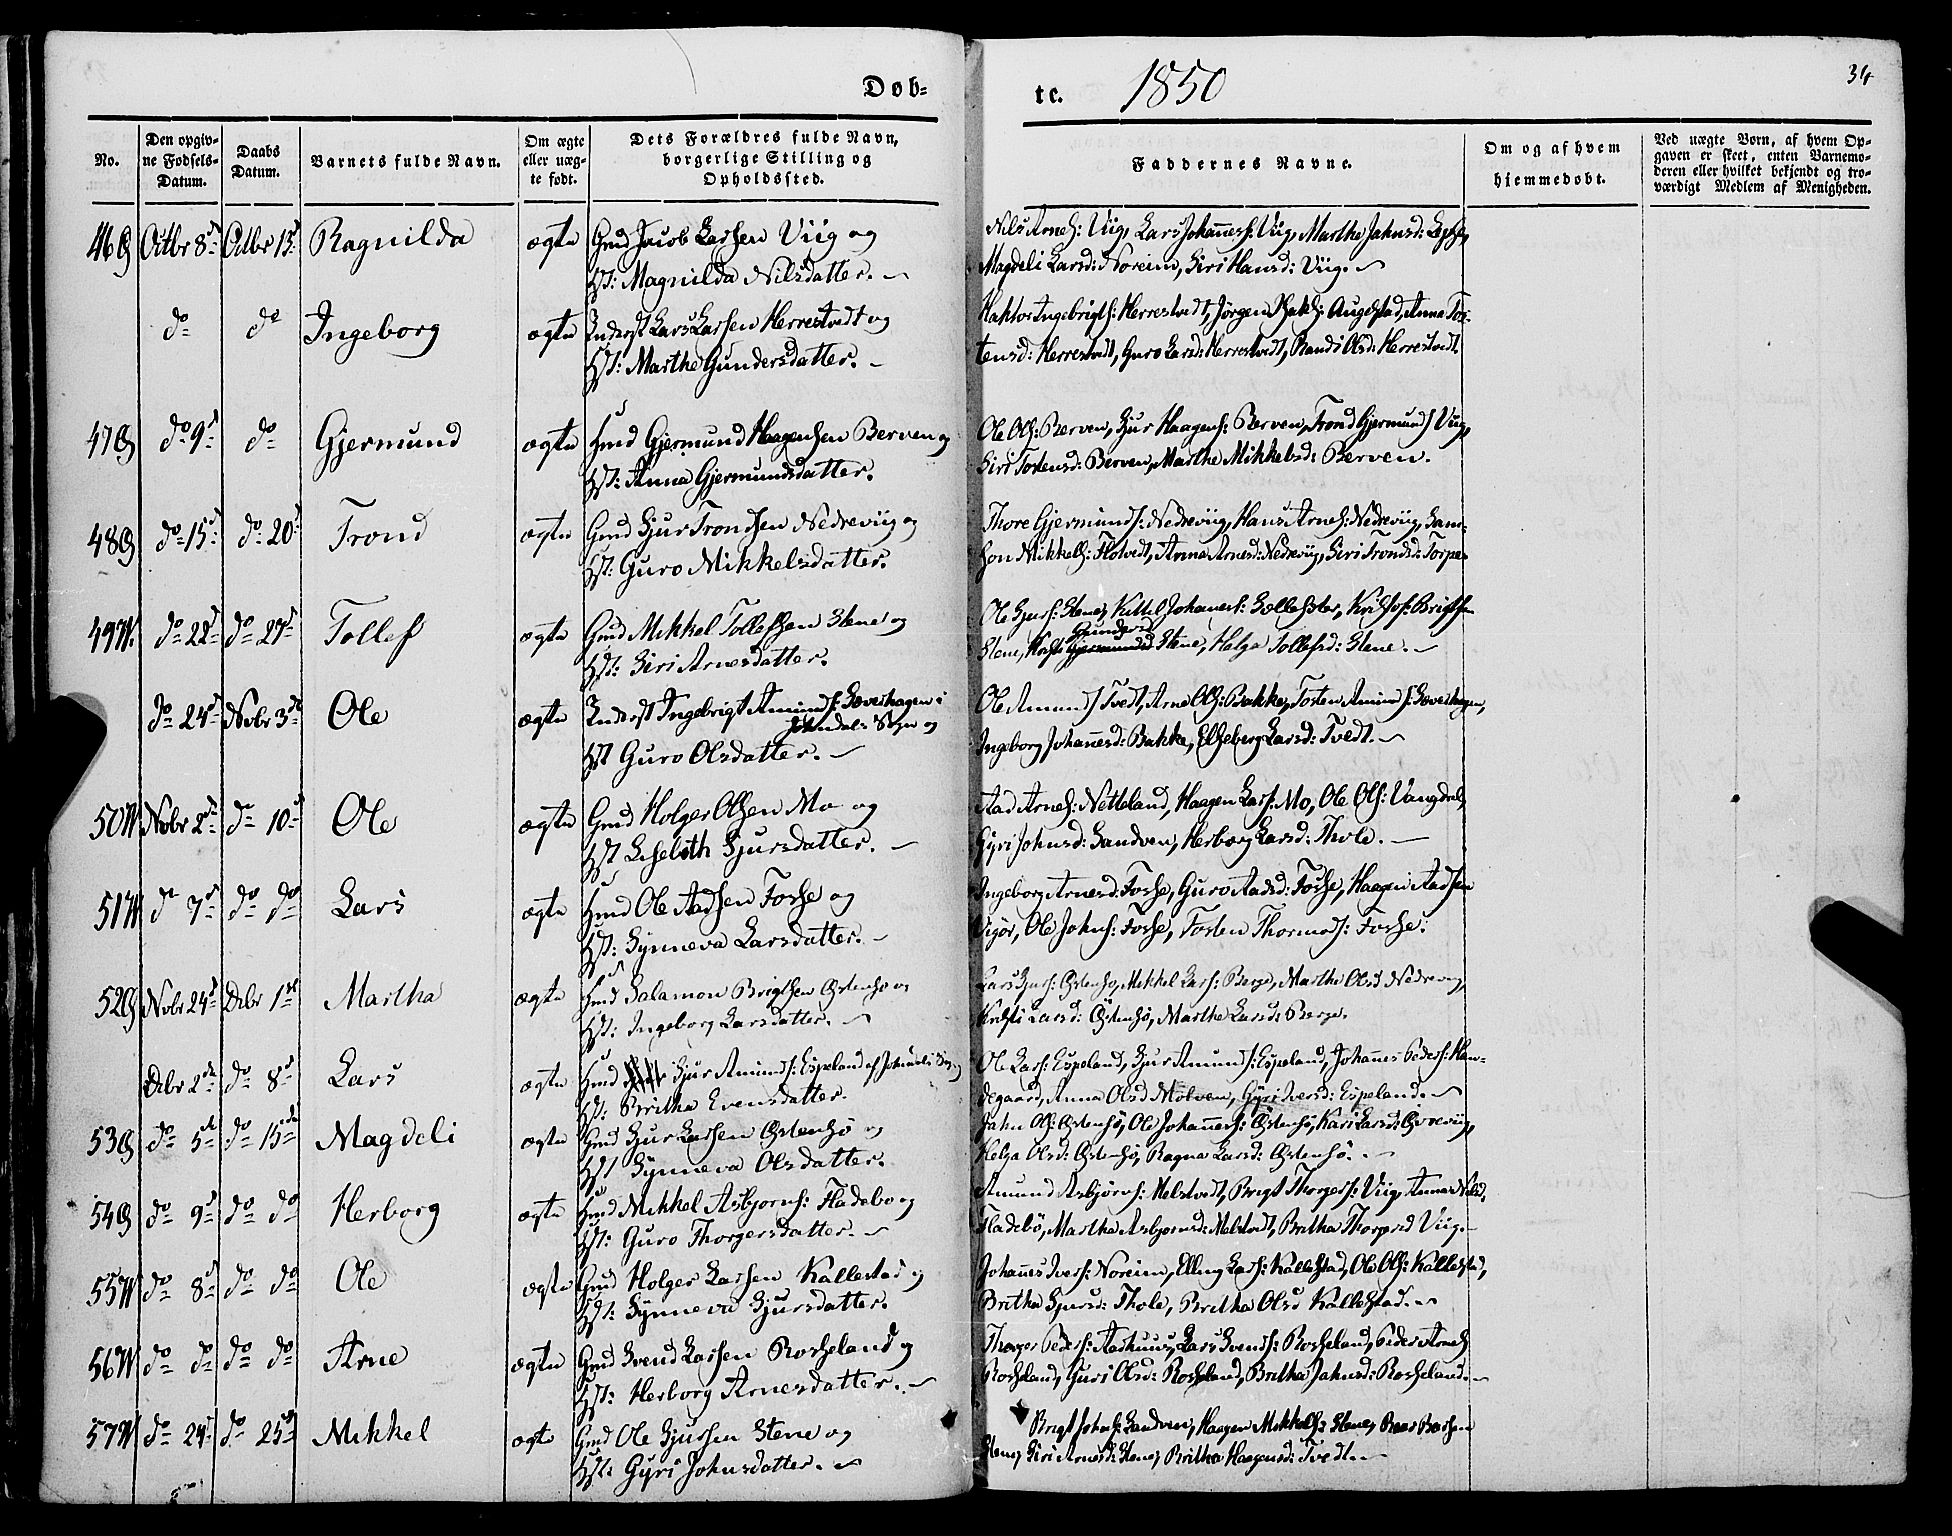 Døb-
te. 1850
34
No.
Den opgivne Fødsels-Datum.
Daabs Datum.
Barnets fulde Navn.
Om ægte eller uægte født.
Dets Forældres fulde Navn, borgerlige Stilling og Opholdssted.
Faddernes Navne.
Om og af hvem hjemmedøbt.
Ved uægte Børn, af hvem Opgaven er skeet, enten Barnemoderen eller hvilket bekjendt og troværdigt Medlem af Menigheden.
46 Octbr 8d Octbr 13d Ragnilda ægte Gmd Jacob Larsen Viig og
Hst: Magnilda Nilsdatter.
Nils Arnes: Viig, Lars Johanness: Viig, Marthe Jahnsd:
Magdeli Larsd: Noreim, Siri Hansd: Viig.
do do Ingeborg ægte Inderst Lars Larsen Herrestvedt og
Hst: Marthe Gundersdatter.
Haktor Ingebrigts: Herrestvedt, Jørgen Augestad, Anna Tor-
tensd: Herrestvedt, Guro Larsd: Herrestvedt, Randi Olsd: Herrestvedt.
47 do 9d do Gjermund ægte Hmd Gjermund Haagensen Berven og
Hst: Anna Gjermundsdatter.
Ole Ols: Berven, Sjur Haagens: Berven, Trond Gjermunds Viig,
Siri Tostensd: Berven, Marthe Mikkelsd: Berven.
48 do 15d do 20d Trond ægte Gmd Sjur Trondsen Nedreviig og
Hst: Guro Mikkelsdatter.
Thore Gjermunds: Nedreviig, Hans Arnes: Nedreviig, Sam-
son Mikkels: Flotvedt, Anna Arnesd: Nedreviig, Siri Trondsd: Torpe
49 do 22d do 27d Tollef ægte Gmd Mikkel Tollefsen Stene og
Hst: Siri Arnesdatter.
Ole Sjurs: Stene, Kittel Johaness: Brigtsen
Gundersd
Stene, Stene, Helga Tollefsd: Stene.
do 24d Novbr 3d Ole ægte Inderst Ingebrigt Amunds: i
Sogn og
Hst Guro Olsdatter.
Ole Amunds Tvedt, Arne Ols: Bakke, Tosten Amunds:
Ingeborg Johannesd: Bakke, Elseberg Larsd: Tvedt.
50 Novbr 2d do 10d Ole ægte Gmd Holger Olsen Mo og
Hst Liselith Sjursdatter.
Aad Arnes: Netteland, Haagen Lars: Mo, Ole Ols: Vangdal,
Gyri Johnsd: Sandven, Herborg Larsd: Thole.
51 do 7d do do Lars ægte Hmd Ole Aadsen Fosse og
Hst: Synneva Larsdatter.
Ingeborg Arnesd: Fosse, Guro Aadsd: Fosse, Haagen Aadsen
Vigør, Ole Johns: Fosse, Tosten Thormods: Fosse.
52 Novbr 24d Debr 1ste Martha ægte Hmd Salamon Brigtsen Østensø og
Hst: Ingeborg Larsdatter.
Lars Sjurs: Østensø, Mikkel Lars: Berge, Marthe Olsd Nedreviig,
Kristi Larsd: Østensø, Marthe Larsd: Berge.
Debr 2d do 8d Lars ægte Hmd Sjur Amunds: Espeland af Sogn
Hst: Britha Evensdatter.
Ole Lars: Espeland, Sjur Amunds: Espeland, Johannes Peders: Han-
degaard, Anna Olsd Molven, Gyri Iversd: Espeland.
53 do 5d do 15de Magdeli ægte Gmd Sjur Larsen Østensø og
Hst Synneva Olsdatter.
Jahn Ols: Østensø, Ole Johanness: Østensø, Kari Larsd: Øvreviig,
Helga Olsd: Østensø, Ragna Larsd: Østensø.
54 do 9d do do Herborg ægte Hmd Mikkel Asbjørns: Fladebø og
Hst: Guro Thorgersdatter.
Amund Asbjørns: Melstvedt, Brigt Thorgers: Viig, Anna Nilsd,
Fladebø, Martha Asbjørnsd: Melstvedt, Britha Thorgersd Viig.
55 do 8d do do Ole ægte Gmd Holger Larsen Kallestad og
Hst: Synneva Sjursdatter.
Johannes Ivers: Noreim, Elling Lars: Kallestad, Ole Ols: Kallestad,
Britha Sjursd: Thole, Britha Olsd Kallestad.
56 do do do do Arne ægte Gmd Svend Larsen Rosseland og
Hst: Herborg Arnesdatter.
Thorger Peders: Aarhuus, Lars Svends: Rosseland, Peder Arnes
Rosseland, Guri Olsd: Rosseland, Britha Jahnsd: Rosseland.
57 do 24d do 25d Mikkel ægte Gmd Ole Sjursen Stene og
Hst: Gyri Johnsdatter.
Brigt Johns: Sandven, Haagen Mikkels: Stene,
Stene, Siri Arnesd: Stene, Britha Haagensd: Tvedt.